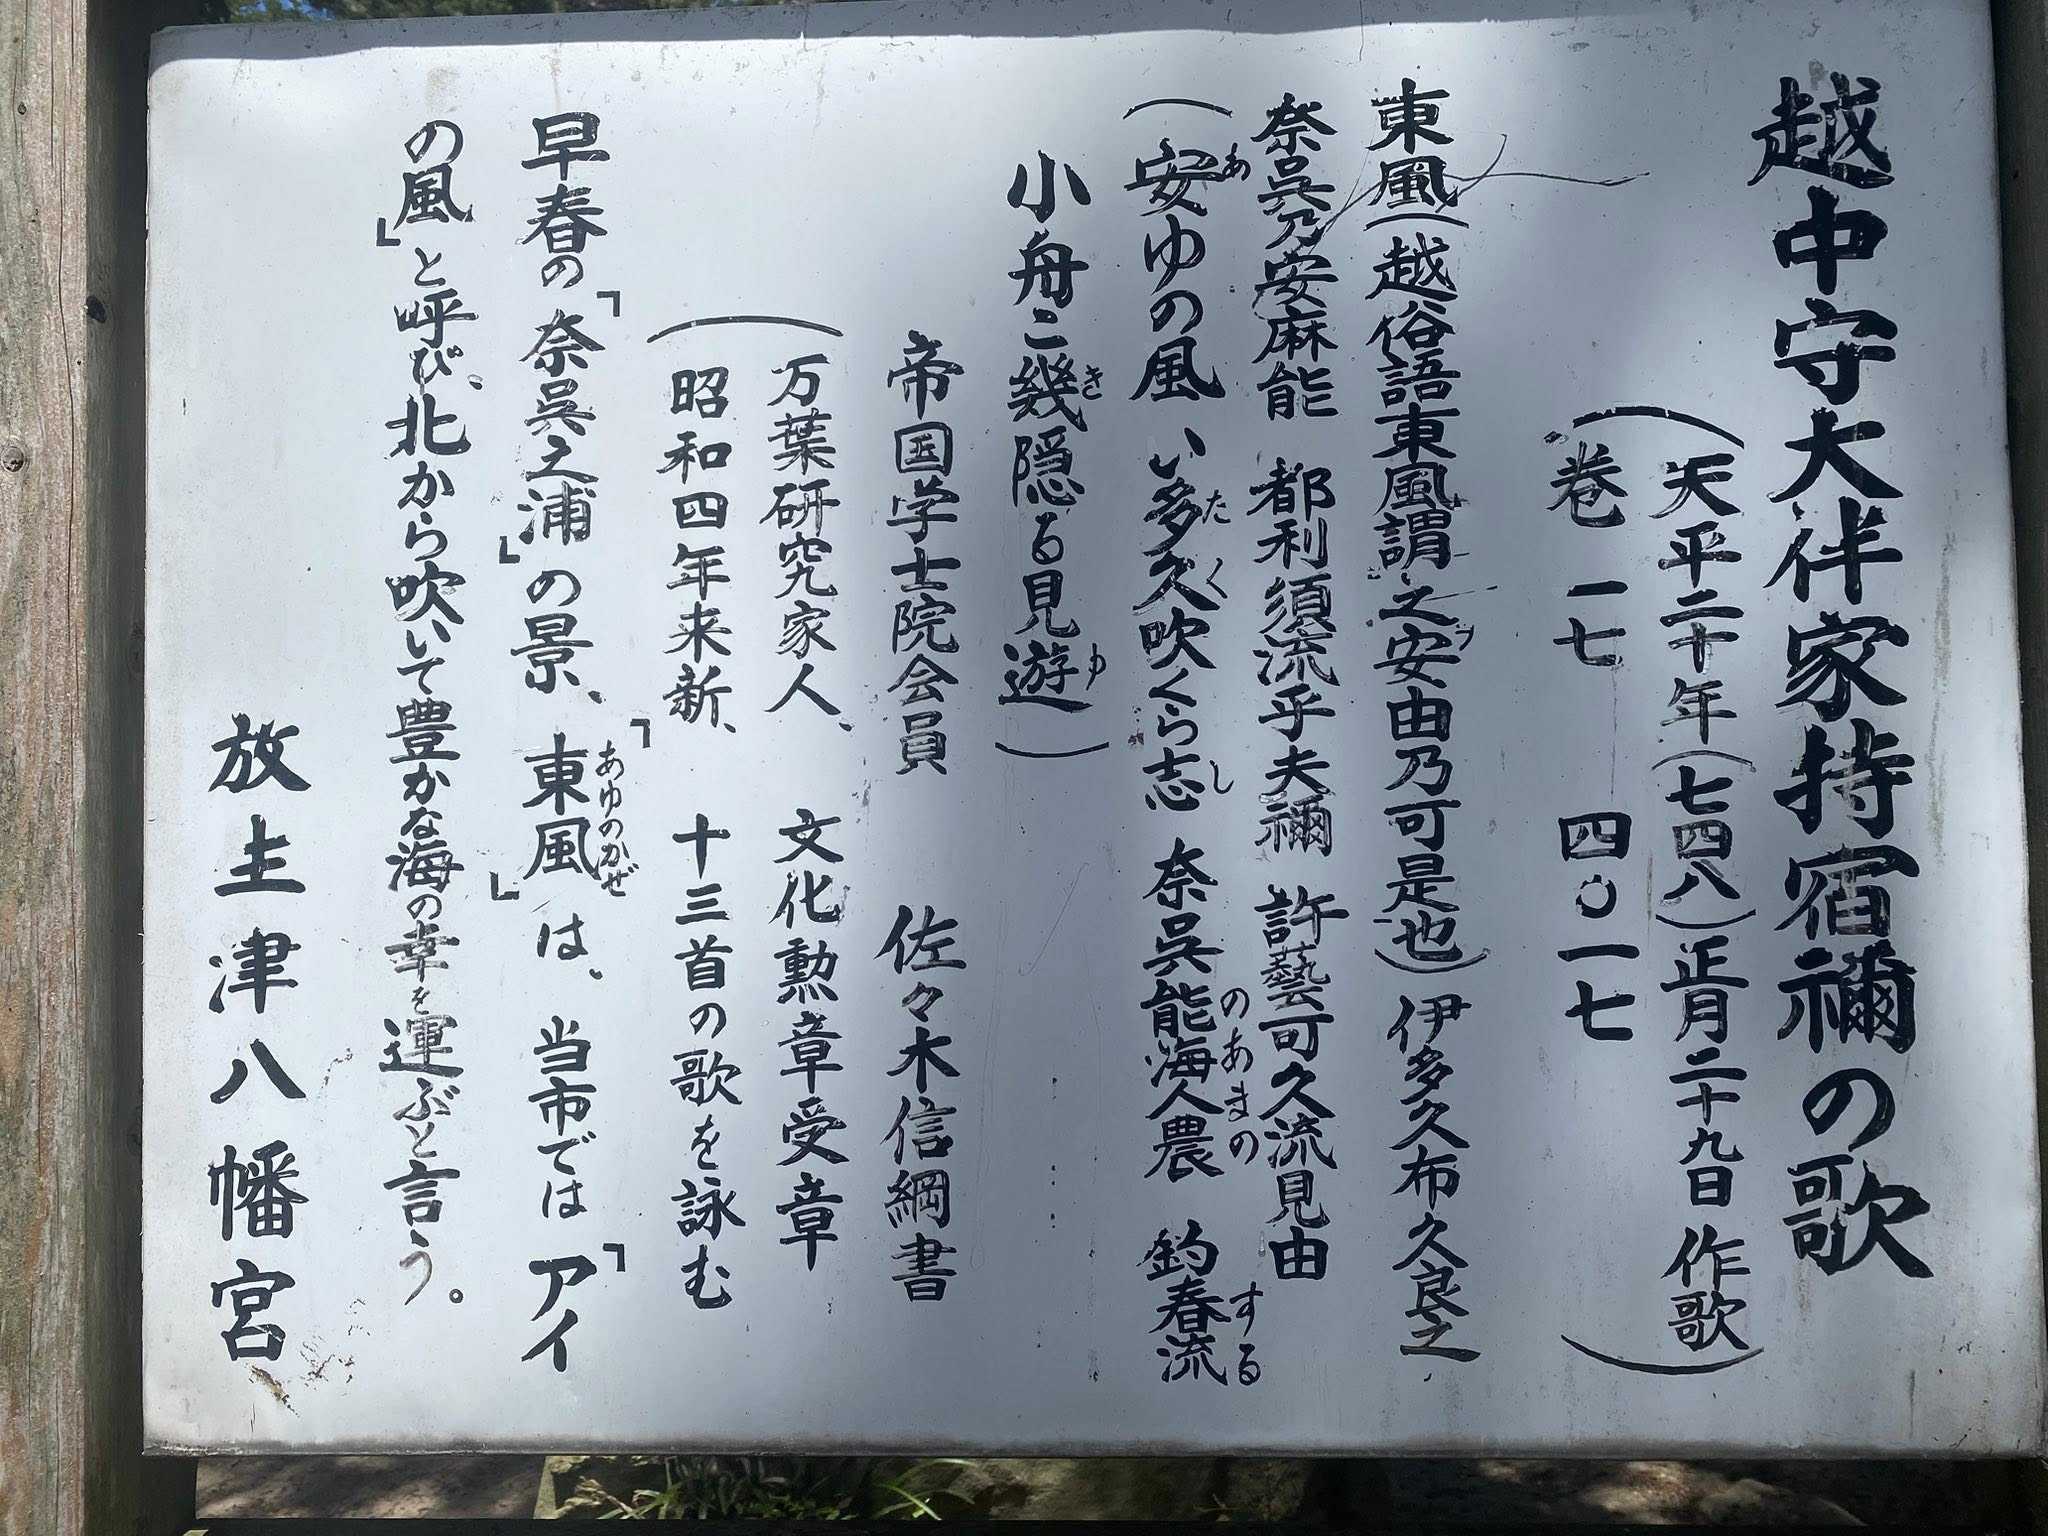 越中守大伴家持宿禰の歌
（天平二十年（七四八）正月二十九日 作歌
巻 一七 四〇一七）
東風（越俗語東風謂之安由乃可是也）伊多久布久良之
奈呉乃安麻能 都利須流乎夫禰 許藝可久流見由
（安ゆの風 い多久吹くら志 奈呉能海人農 釣春流
小舟こ幾隠る見遊）
帝国学士院会員 佐々木信綱書
（万葉研究家人、 文化勲章受章
昭和四年来新、 十三首の歌を詠む
早春の「奈呉之浦」の景、「東風」は、当市では「アイ
の風」と呼び、北から吹いて豊かな海の幸を運ぶと言う。
放生津八幡宮